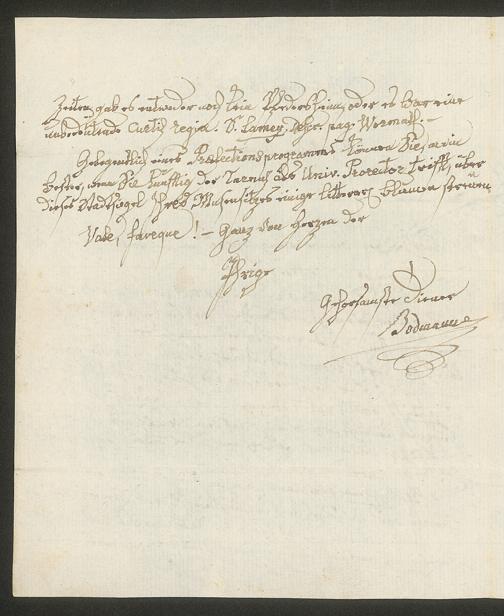 Zeiten, gab es entweder noch kein Pfedersheim, oder es war eine
unbedeutende Curtis regia. S. Lamey, descr. pag. Wormat. –
Gelegentlich eines Prorectionsprogramms können Sie, mein
bester, wenn Sie künftig der Turnus des Univ. Prorector trifft, über
dieses Stadtsigel Ihres Musensitzes einige litterar. Blumen streuen.
Vale, faveque! – Ganz von Herzen der
Ihrige
Gehorsamster Diener
Bodmann